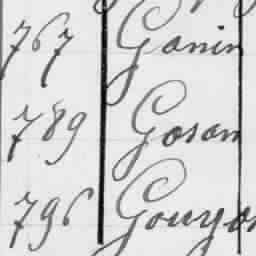 767 Ganin
789 Goson
796 Gouyon